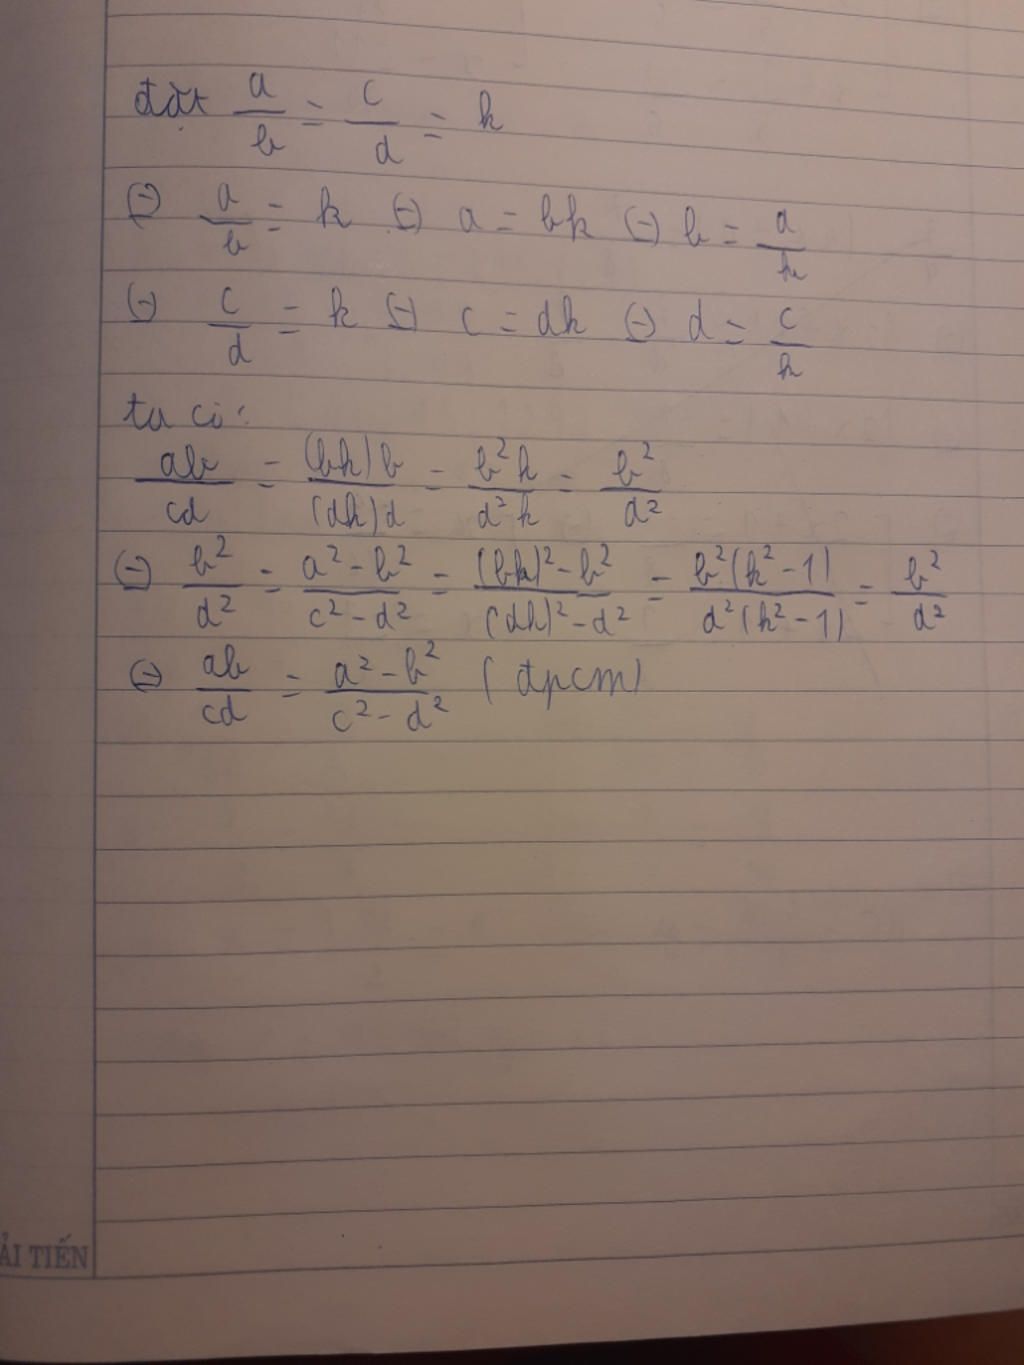 đặt a/b = c/d = k
⇔ a/b = k ⇔ a = bk ⇔ b = a/k
⇔ c/d = k ⇔ c = dk ⇔ d = c/k
ta có:
ab/cd = (bk)b/(dk)d = b²k/d²k = b²/d²
⇔ b²/d² = a²-b²/c²-d² = (bk)²-b²/(dk)²-d² = b²(k²-1)/d²(k²-1) = b²/d²
⇔ ab/cd = a²-b²/c²-d² (đpcm)
ẢI TIẾN